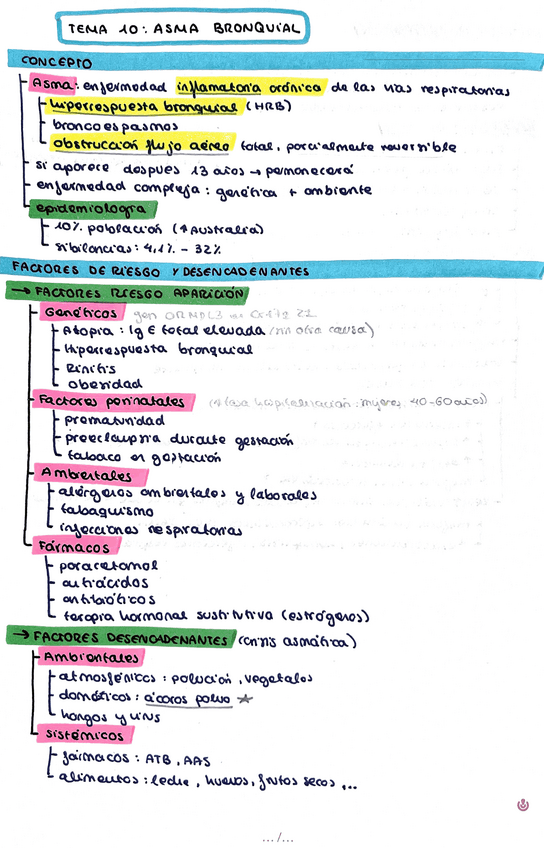 TEMA 10: ASMA BRONQUIAL
CONCEPTO
Asma: enfermedad inflamatoria crónica de las vías respiratorias
hiperrespuesta bronquial (HRB)
broncoespasmos
obstrucción flujo aéreo total, parcialmente reversible
si aparece despues 13 años → permanecerá
enfermedad compleja: genética + ambiente
epidemiología
10% población (↑ Australia)
sibilancias: 4,1% - 32%
FACTORES DE RIESGO Y DESENCADENANTES
→ FACTORES RIESGO APARICIÓN
Genéticos gen ORMDL3 en
Atopia: Ig E total elevada (sin otra causa)
Hiperrespuesta bronquial
Rinitis
Obesidad
Factores perinatales (↑ tasa hospitalización: mujeres, 40-60 años)
prematuridad
preeclampsia durante gestación
tabaco en gestación
Ambientales
alérgenos ambientales y laborales
tabaquismo
infecciones respiratorias
Fármacos
paracetamol
antiácidos
antibióticos
terapia hormonal sustitutiva (estrógenos)
→ FACTORES DESENCADENANTES (crisis asmática)
Ambientales
atmosféricos: polución, vegetales
domésticos: ácaros polvo ★
hongos y virus
Sistémicos
fármacos: ATB, AAS
alimentos: leche, huevos, frutos secos ...
.../...